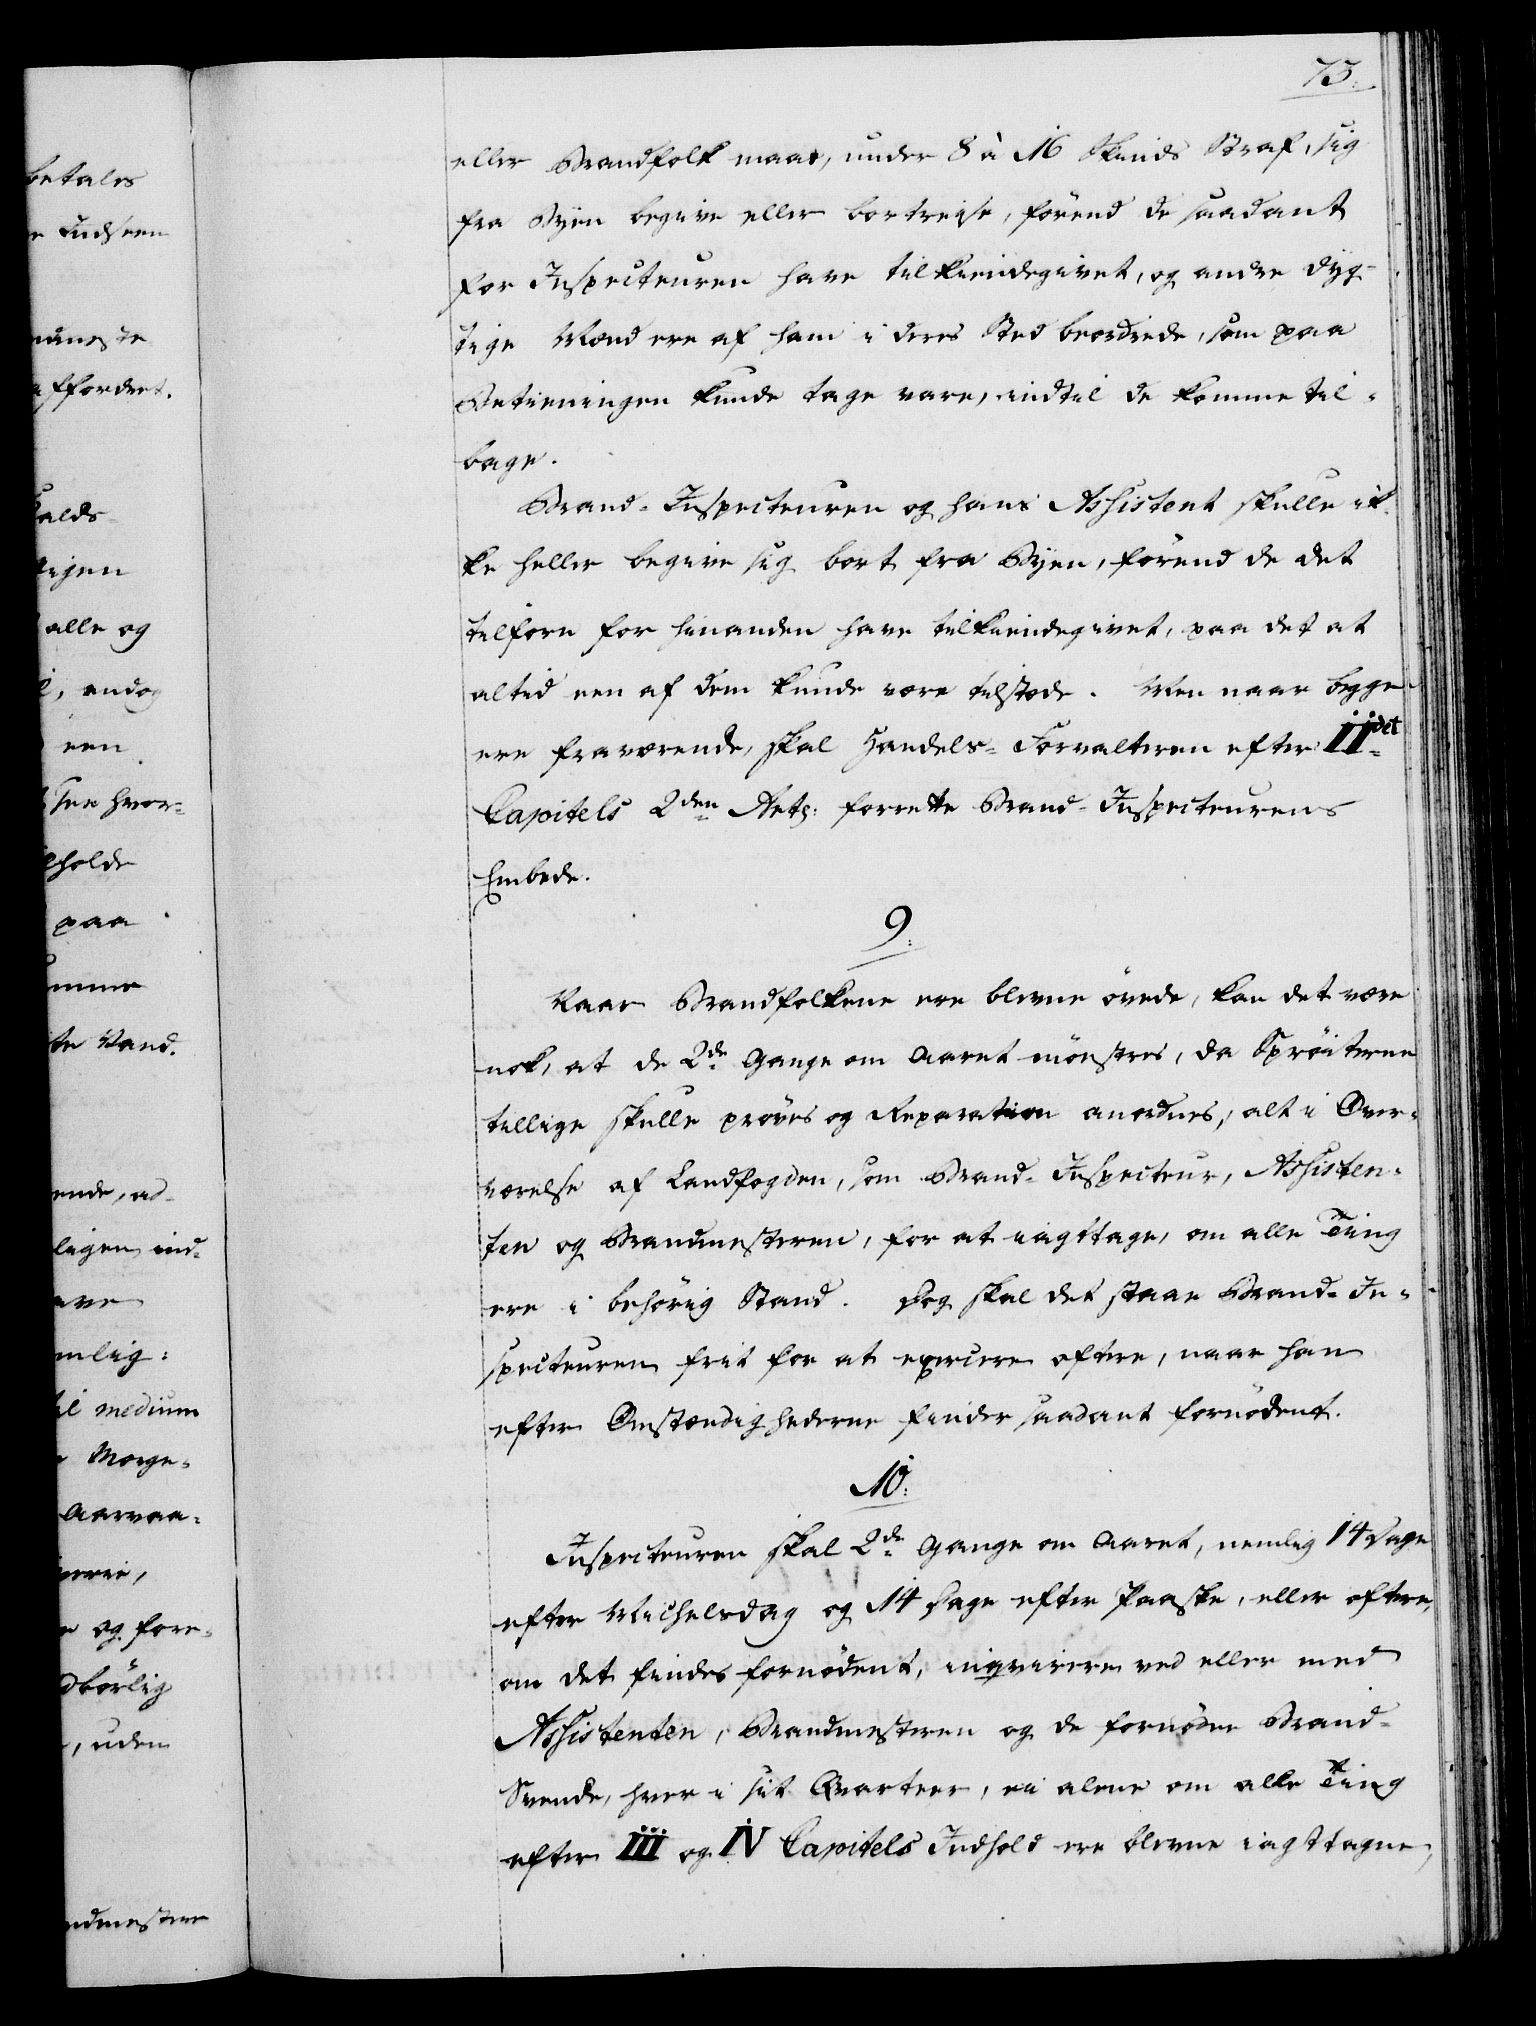 73.
eller Brandfolk maae, under 8 à 16 Skinds Straf, sig
fra Byen begive eller bortreise, förend de saadant
for Inspecteuren have tilkiendegivet, og andre dyg-
tige Mænd ere af ham i deres Sted beordrede, som paa
Betieningen kunde tage vare, indtil de komme til-
bage.
Brand-Inspecteuren og hans Assistent skulle ik-
ke heller begive sig bort fra Byen, förend de det
tilforn for hinanden have tilkiendegivet, paa det at
altid een af dem kunde være tilstæde. Men naar begge
ere fraværende, skal Handels-Forvalteren efter IIdet
Capitels 2den Art: forrette Brand-Inspecteurens
Embede.
9.
Naar Brandfolkene ere blevne övede, kan det være
nok, at de 2de Gange om Aaret mönstres, da Spröiterne
tillige skulle pröves og Reparation anordnes, alt i Over-
værelse af Landfogden, som Brand-Inspecteur, Assisten-
ten og Brandmesteren, for at iagttage, om alle Ting
ere i behörig Stand. Dog skal det staae Brand-In-
specteuren frit for at exercere oftere, naar han
efter Omstændighederne finder saadant fornödent.
10.
Inspecteuren skal 2de Gange om Aaret, nemlig 14 Dage
efter Michelsdag og 14 Dage efter Paaske, eller oftere,
om det findes fornödent, inqvirere ved eller med
Assistenten, Brandmesteren og de fornödne Brand-
Svende, hver i sit Qvarteer, ei alene om alle Ting
efter III og IV Capitels Indhold ere blevne iagttagne,
betales
mueste
affordret.
alle og
een
paa
te Vand.
lagen, ind-
medium
Morge-
Aarvaa-
og fore-
, uden
ndmestere